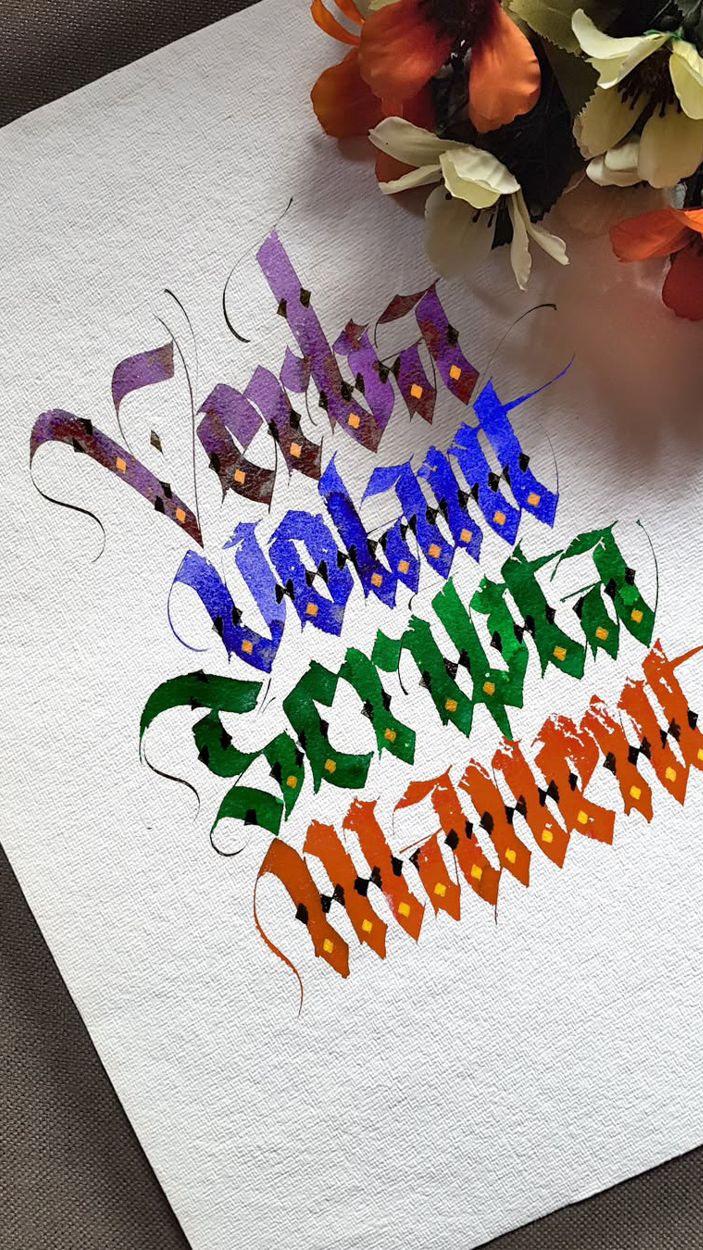 Verba
Volant
Scripta
Manent